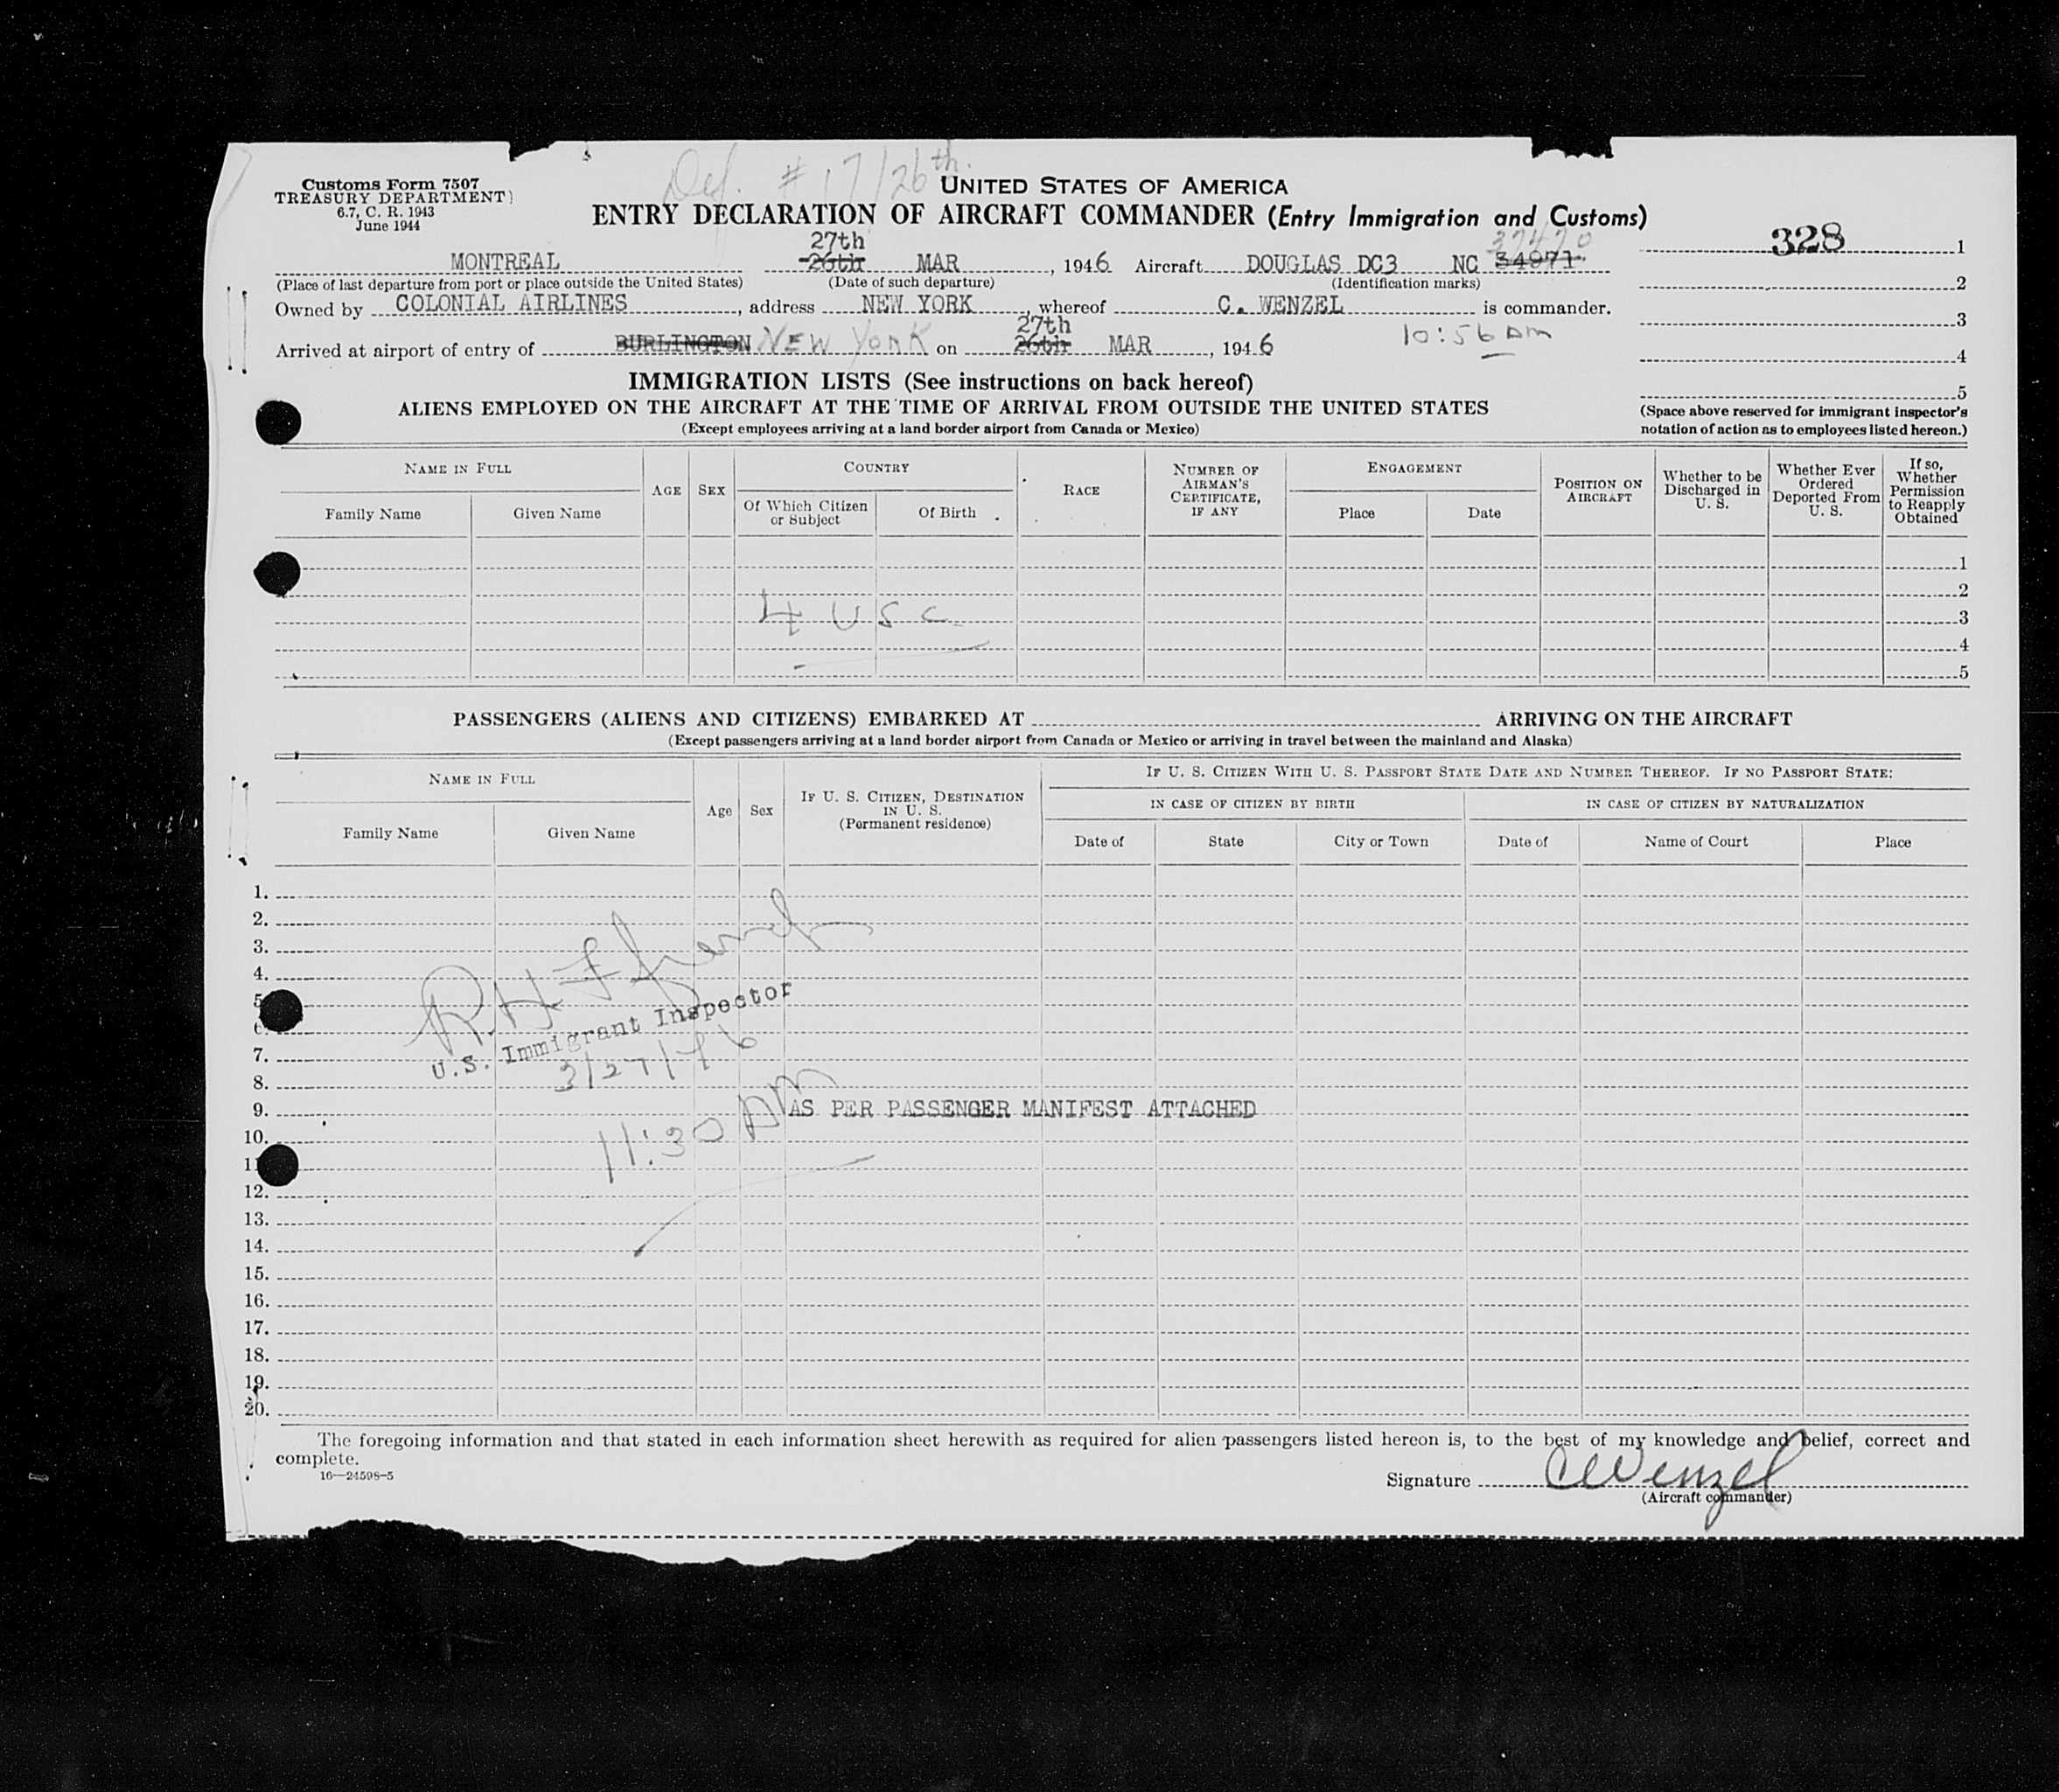 Def. # 17/26th.
Customs Form 7507
TREASURY DEPARTMENT)
6.7, C. R. 1943
June 1944
UNITED STATES OF AMERICA
ENTRY DECLARATION OF AIRCRAFT COMMANDER (Entry Immigration and Customs)
328 1
27th 37470
MONTREAL 26th MAR , 1946 Aircraft DOUGLAS DC3 NC 34971
(Place of last departure from port or place outside the United States) (Date of such departure) (Identification marks)
2
Owned by COLONIAL AIRLINES , address NEW YORK , whereof C. WENZEL is commander.
3
27th
Arrived at airport of entry of BURLINGTON NEW YORK on 26th MAR , 1946 10:56 AM
4
5
IMMIGRATION LISTS (See instructions on back hereof)
ALIENS EMPLOYED ON THE AIRCRAFT AT THE TIME OF ARRIVAL FROM OUTSIDE THE UNITED STATES
(Except employees arriving at a land border airport from Canada or Mexico)
(Space above reserved for immigrant inspector's
notation of action as to employees listed hereon.)
NAME IN FULL
Family Name Given Name
AGE SEX
COUNTRY
Of Which Citizen
or Subject
Of Birth
RACE
NUMBER OF
AIRMAN'S
CERTIFICATE,
IF ANY
ENGAGEMENT
Place Date
POSITION ON
AIRCRAFT
Whether to be
Discharged in
U. S.
Whether Ever
Ordered
Deported From
U. S.
If so,
Whether
Permission
to Reapply
Obtained
1
2
4 U S C 3
4
5
PASSENGERS (ALIENS AND CITIZENS) EMBARKED AT ARRIVING ON THE AIRCRAFT
(Except passengers arriving at a land border airport from Canada or Mexico or arriving in travel between the mainland and Alaska)
NAME IN FULL
Family Name Given Name
Age Sex
IF U. S. CITIZEN, DESTINATION
IN U. S.
(Permanent residence)
IF U. S. CITIZEN WITH U. S. PASSPORT STATE DATE AND NUMBER THEREOF. IF NO PASSPORT STATE:
IN CASE OF CITIZEN BY BIRTH IN CASE OF CITIZEN BY NATURALIZATION
Date of State City or Town Date of Name of Court Place
1.
2.
3.
4.
5
6.
7.
8.
R.H.
U.S. Immigrant Inspector
3/27/46
9. AS PER PASSENGER MANIFEST ATTACHED
11:30 AM
10.
11
12.
13.
14.
15.
16.
17.
18.
19.
20.
The foregoing information and that stated in each information sheet herewith as required for alien passengers listed hereon is, to the best of my knowledge and belief, correct and
complete.
16—24598-5
Signature C Wenzel
(Aircraft commander)